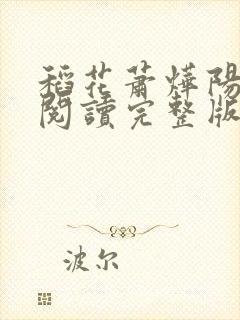 稻花蕭燁陽
閱讀完整版
波尔